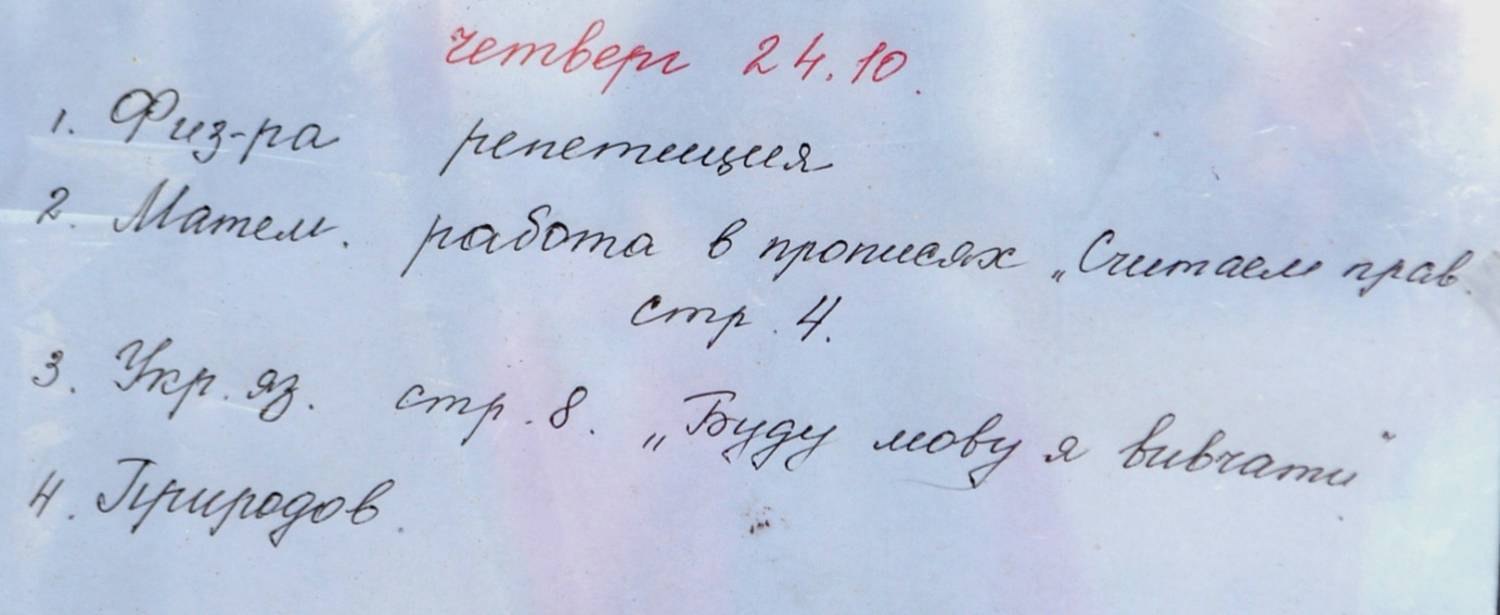 четверг 24.10.
1. Физ-ра репетиция
2. Матем. работа в прописях „Считаем прав.
стр. 4.
3. Укр. яз. стр. 8. „Буду мову я вивчати"
4. Природов.